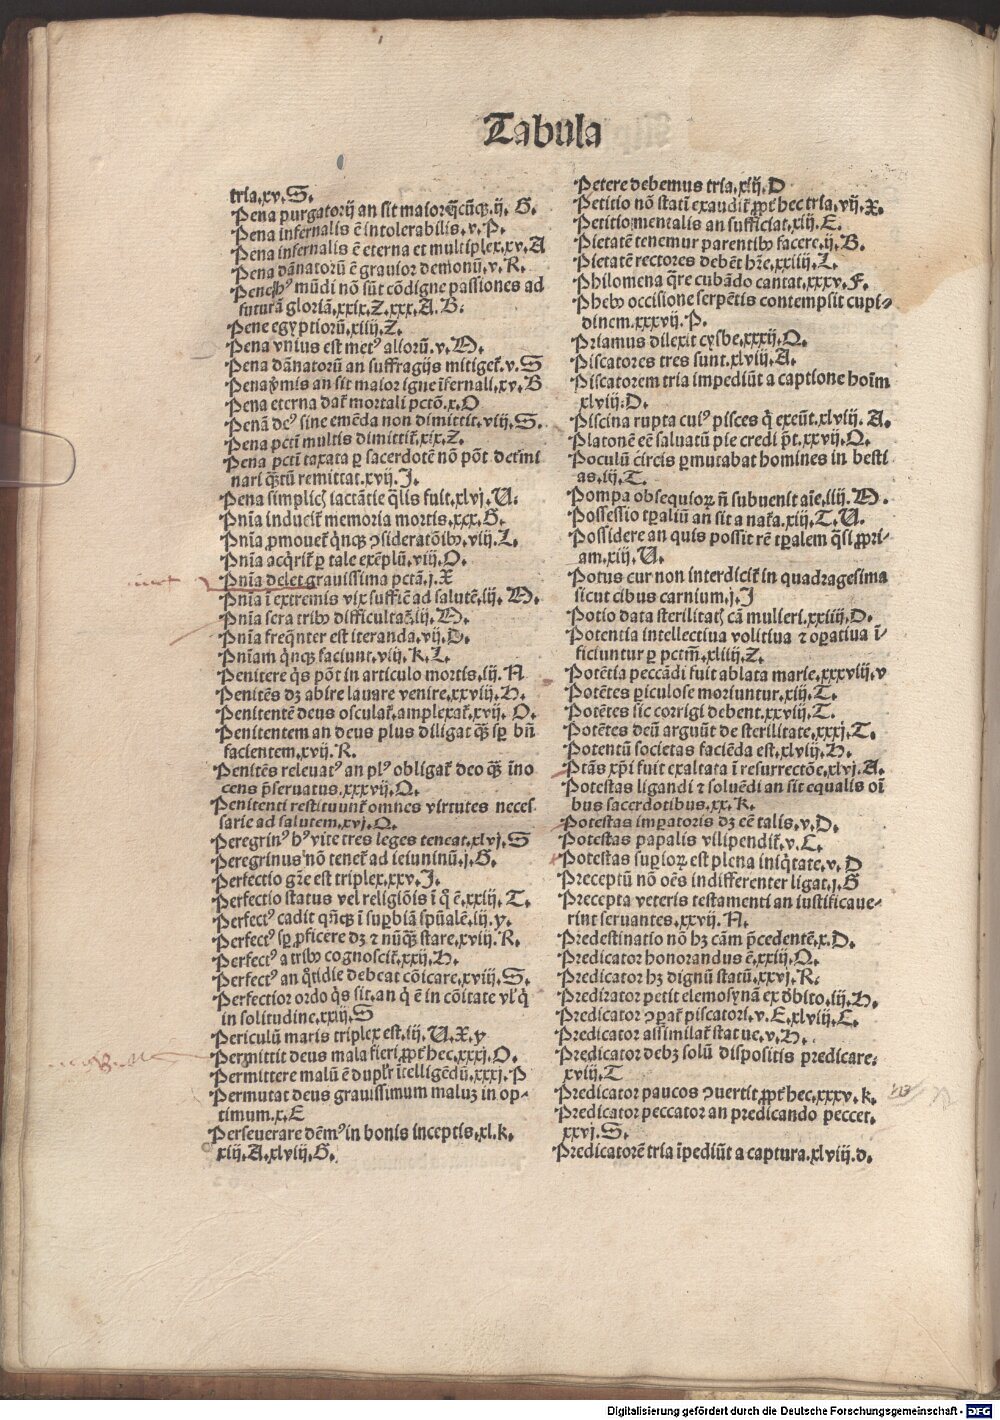 Tabula
tria.xv.S.
Pena purgatorij an sit maior q̄cūq̄.ij. G.
Pena infernalis ē intolerabilis.v.P.
Pena infernalis ē eterna et multiplex.xv.A
Pena dānatorū ē grauior demonū.v.R.
Pene hꝰ mūdi nō sūt cōdigne passiones ad
futurā gloriā.xxix.Z.xxx.A.B.
Pene egyptiorū.xiiij.Z.
Pena vnius est metꝰ aliorū.v.M.
Pena dānatorū an suffragijs mitiget̄.v.S
Pena v̄mis an sit maior igne īfernali.xv.B
Pena eterna dat̄ mortali pctō.x.O
Penā deꝰ sine emēda non dimittit.viij.S.
Pena pcti multis dimittit̄.xix.Z.
Pena pcti taxata p̱ sacerdotē nō pōt det̄mi
nari q̄ꝫtū remittat.xvij.I.
Pena simplicꝭ iactātie q̄lis fuit.xlvj.U.
Pnīa inducit̄ memoria mortis.xxx.G.
Pnīa ꝓmouet̄ q̇nqꝫ ꝯsideratōibꝰ.viij.L.
Pnīa acq̇rit̄ p̱ tale exēplū.viij.O.
Pnīa delet grauissima pctā.j.X
Pnīa ī extremis vix suffic̄ ad salutē.iij. M.
Pnīa sera tribꝰ difficultat̄.iij.M.
Pnīa freq̄nter est iteranda.vij.D.
Pnīam q̇nqꝫ faciunt.viij.K.L.
Penitere q̇s pōt in articulo mortis.iij.N
Penitēs dꝫ abire lauare venire.xxviij.H.
Penitentē deus osculat̄.amplexat̄.xvij. O.
Penitentem an deus plus diligat q̄ꝫ sp̱ bn̄
facientem.xvij.R.
Penitēs releuatꝰ an plꝰ obligat̄ deo q̄ꝫ īno
cens p̄seruatus.xxxvij.Q.
Penitenti restituunt̄ omnes virtutes neces
sarie ad salutem.xvj.Q.
Peregrinꝰ hꝰ vite tres leges teneat.xlvj.S
Peregrinus nō tenet̄ ad ieiuninū.j.G.
Perfectio gr̄e est triplex.xxv.I.
Perfectio status vel religiōis ī q̇ ē.xxiij.T.
Perfectꝰ cadit qn̄qꝫ ī sup̱biā sp̄ualē.iij.y.
Perfectꝰ sp̱ ꝓficere dꝫ ⁊ nūq̄ꝫ stare.xviij.R.
Perfectꝰ a tribꝰ cognoscit̄.xxij.H.
Perfectꝰ an q̊tidie debeat cōicare.xviij.S.
Perfectior ordo q̇s sit.an q̇ ē in cōitate vl̓ q̇
in solitudine.xxiij.S
Periculū maris triplex est.iij.U.X.y
Permittit deus mala fieri ꝓpt̄ hec.xxxj.O.
Permittere malū ē dupl̓r ītelligēdū.xxxj.P
Permutat deus grauissimum maluꝫ in op-
timum.x.E
Perseuerare dēmꝰ in bonis inceptis.xl.k.
xiij.A.xlviij.G.
Petere debemus tria.xiij.D
Petitio nō statī exaudit̄ ꝓpt̄ hec tria.vij.X.
Petitio mentalis an sufficiat.xiij.E.
Pietatē tenemur parentibꝰ facere.ij.B.
Pietatē rectores debēt hr̄e.xxiiij.L.
Philomena q̄re cubādo cantat.xxxv.F.
Phebꝰ occisione serpētis contempsit cupi-
dinem.xxxvij.P.
Priamus dilexit cysbe.xxxij.Q.
Piscatores tres sunt.xlviij.A.
Piscatorem tria impediūt a captione hoīm
xlviij.D.
Piscina rupta cuiꝰ pisces q̇ exeūt.xlviij. A.
Platonē eē saluatū pie credi p̄t.xxvij.Q.
Poculū circis p̱mutabat homines in besti
as.iij.T.
Pompa obsequioꝝ n̄ subuenit aīe.iiij.M.
Possessio tp̱aliū an sit a nat̄a.xiij.T.U.
Possidere an quis possit rē tp̱alem q̄si ꝓpri-
am.xiij.U.
Potus cur non interdicit̄ in quadragesima
sicut cibus carnium.j.I
Potio data sterilitatꝭ cā mulieri.xxiiij.D.
Potentia intellectiua volitiua ⁊ op̱atiua ī-
ficiuntur p̱ pctm̄.xliiij.Z.
Potētia peccādi fuit ablata marie.xxxviij.v
Potētes p̱iculose moriuntur.xiij.T.
Potētes sic corrigi debent.xxviij.T.
Potētes deū arguūt de sterilitate.xxxj.T.
Potentū societas faciēda est.xlviij.H.
Ptās xp̄i fuit exaltata ī resurrectōe.xlvj.A.
Potestas ligandi ⁊ soluēdi an sit equalis oī
bus sacerdotibus.xx.K.
Potestas imp̱atoris dꝫ eē talis.v.D.
Potestas papalis vilipendit̄.v.C.
Potestas sup̱ioꝝ est plena iniq̇tate.v.D
Preceptū nō oēs indifferenter ligat.j.G
Precepta veteris testamenti an iustificaue-
rint seruantes.xxvij.N.
Predestinatio nō hꝫ cām p̄cedentē.x.D.
Predicator honorandus ē.xxiij.Q.
Predicator hꝫ dignū statū.xxvj.R.
Predicator petit elemosynā ex d̓bito.iij.H.
Predicator ꝯp̱at̄ piscatori.v.E.xlviij.C.
Predicator assimilat̄ statue.v.H.
Predicator debꝫ solū dispositis predicare.
xviij.T
Predicator paucos ꝯuertit ꝓpt̄ hec.xxxv.k.
Predicator peccator an predicando peccet.
xxvj.S.
Predicatorē tria īpediūt a captura.xlviij.d.
Digitalisierung gefördert durch die Deutsche Forschungsgemeinschaft - DFG